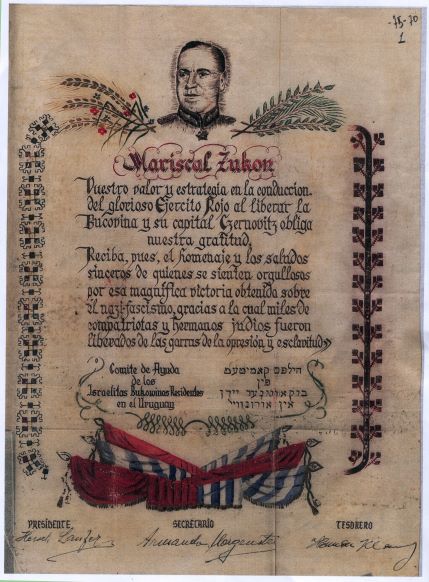 -75-70
1
Mariscal Zukon
Vuestro valor y estrategia en la conduccion
del glorioso Ejercito Rojo al liberar la
Bucovina y su capital Czernovitz obliga
nuestra gratitud.
Reciba, pues, el homenaje y los saludos
sinceros de quienes se sienten orgullosos
por esa magnifica victoria obtenida sobre
el nazi-fascismo, gracias a la cual miles de
compatriotas y hermanos judios fueron
liberados de las garras de la opresión y esclavitud»
Comite de Ayuda
de los
Israelitas Bukowinos Residentes
en el Uruguay
הילפס קאמיטעט
פון
בוקאווינער יידן
אין אורוגוויי
PRESIDENTE,
SECRETARIO
TESORERO
Hersch Laufer
Armando